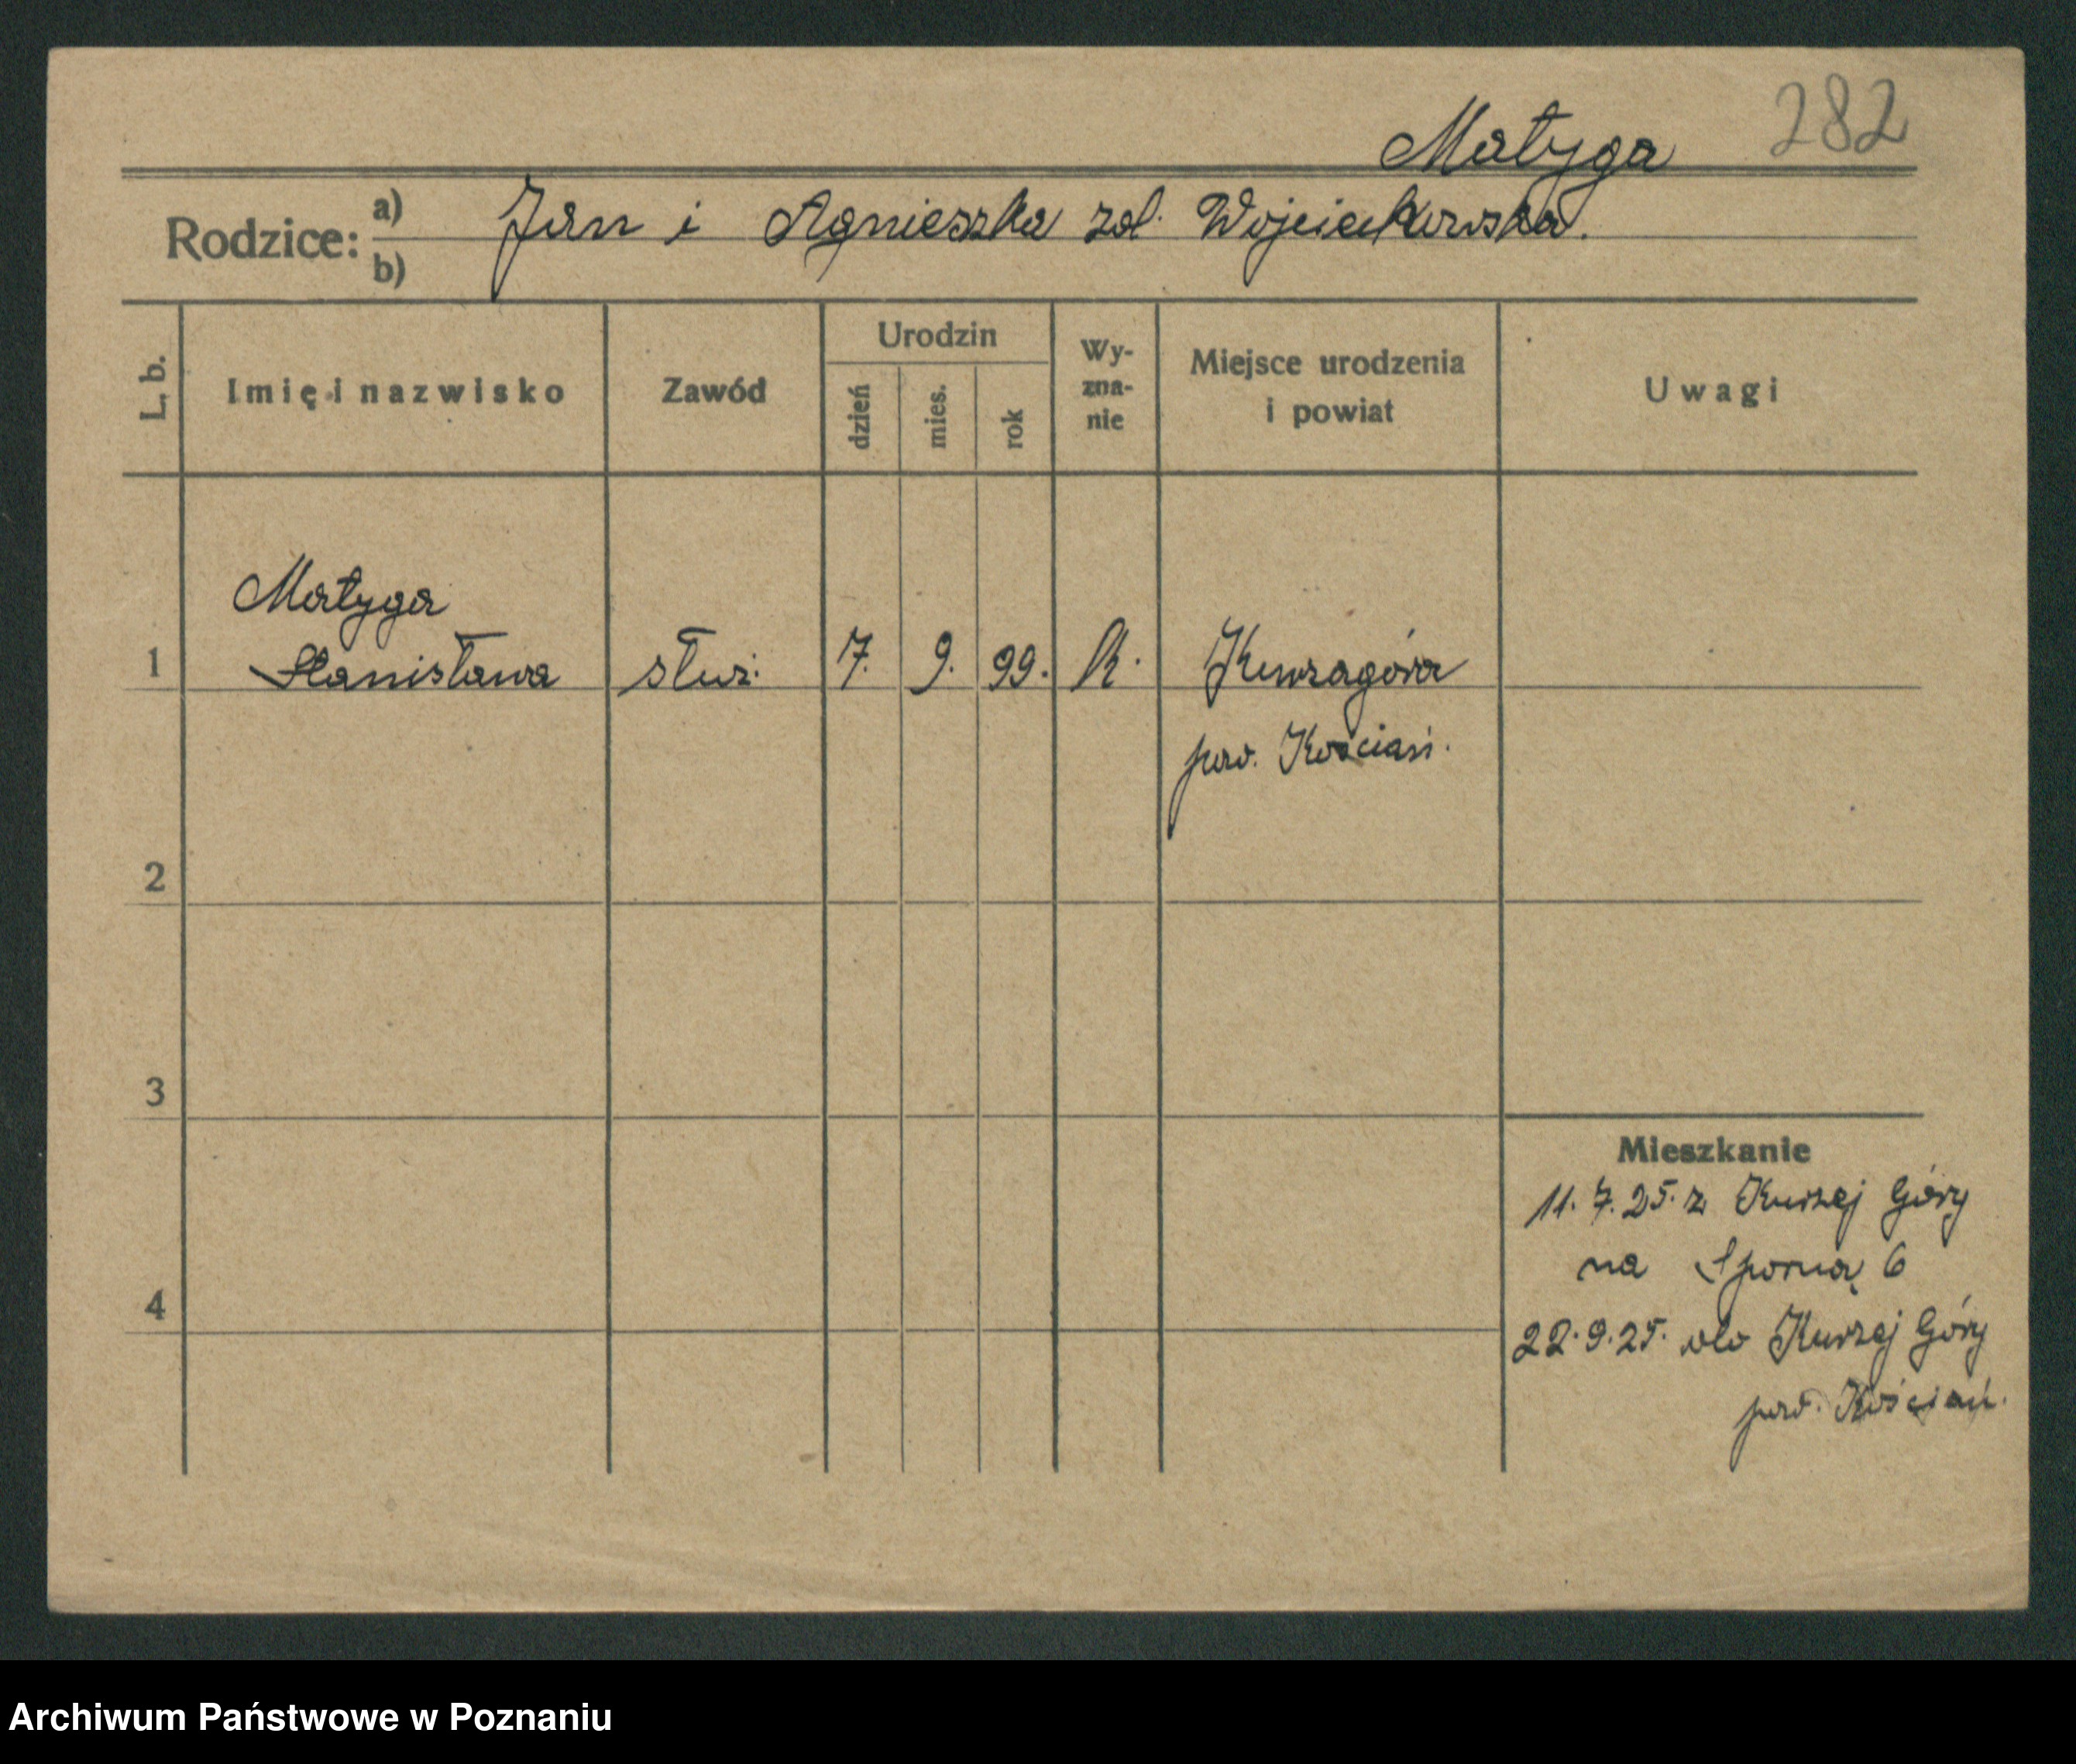 282
Matyga
Rodzice: a) b) Jan i Agnieszka zd. Wojciechowska.
L. b. Imię i nazwisko Zawód Urodzin dzień mies. rok Wy-zna-nie Miejsce urodzenia i powiat Uwagi
Matyga
1 Stanisława służ. 7. 9. 99. K. Kurzagóra
pow. Kościan.
2
3
Mieszkanie
11. 7. 25. z Kurzej Góry
na Sporną 6
4
22. 9. 25. do Kurzej Góry
pow. Kościan.
Archiwum Państwowe w Poznaniu